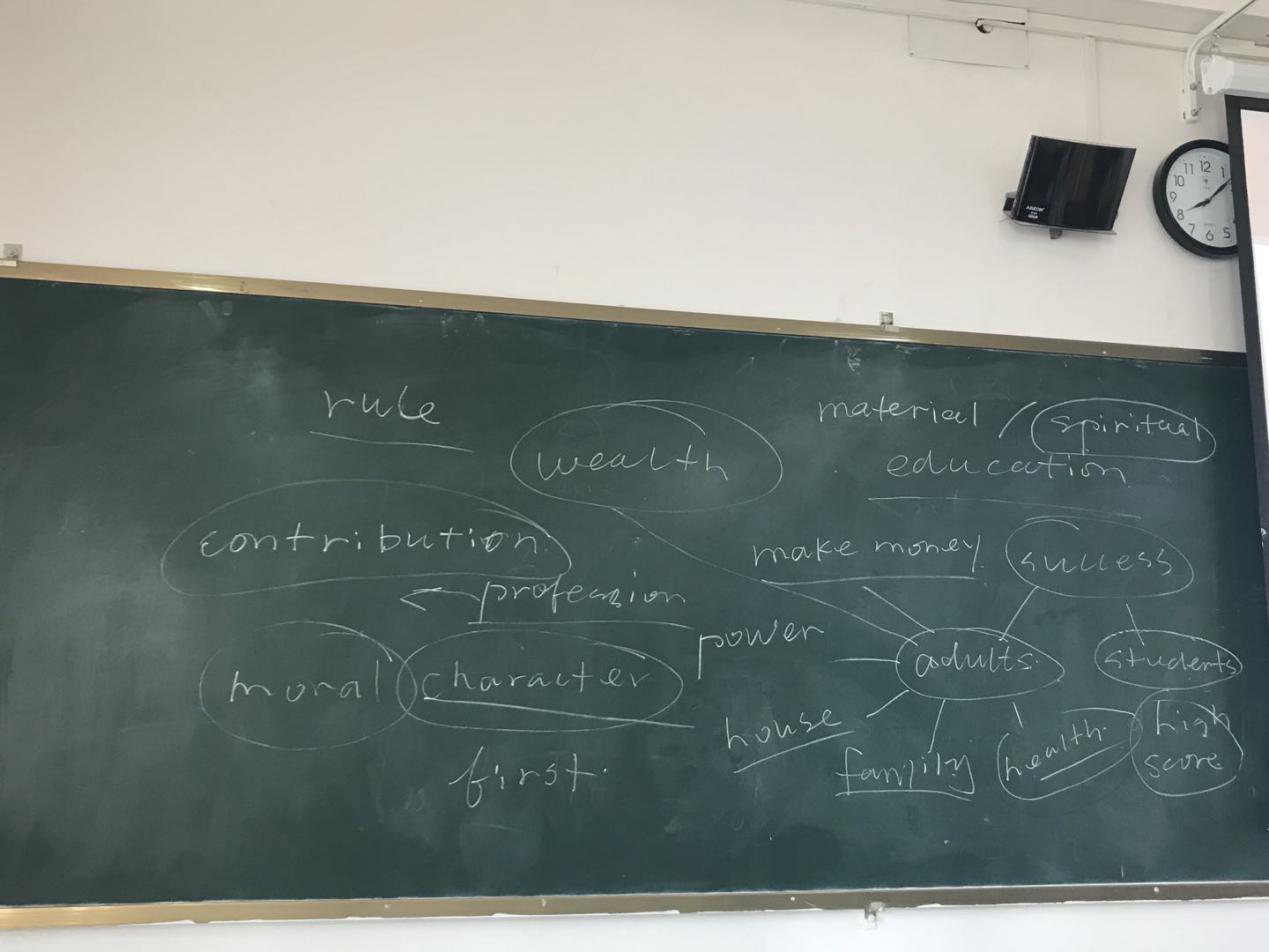 rule
wealth
material / spiritual
education
contribution
make money
success
profession
power
adults
students
moral character
house
family
health
high
score
first
11 12 1
10
9
8
7 6 5